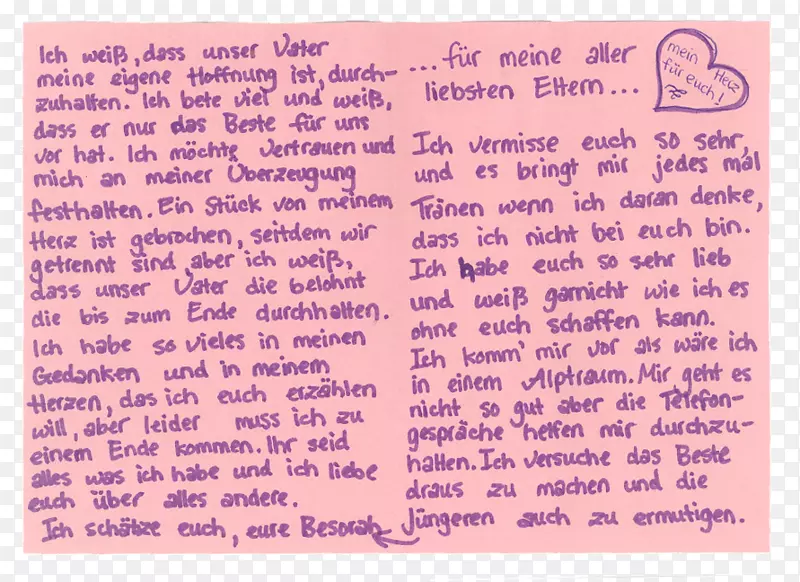 ...für meine aller
liebsten Eltern...
mein Herz
für euch!
Ich vermisse euch so sehr,
und es bringt mir jedes mal
Tränen wenn ich daran denke,
dass ich nicht bei euch bin.
Ich habe euch so sehr lieb
und weiß garnicht wie ich es
ohne euch schaffen kann.
Ich komm' mir vor als wäre ich
in einem Alptraum. Mir geht es
nicht so gut aber die Telefon-
gespräche helfen mir durchzu-
halten. Ich versuche das Beste
draus zu machen und die
Jüngeren auch zu ermutigen.
Ich weiß, dass unser Vater
meine eigene Hoffnung ist, durch-
zuhalten. Ich bete viel und weiß,
dass er nur das Beste für uns
vor hat. Ich möchte Vertrauen und
mich an meiner Überzeugung
festhalten. Ein Stück von meinem
Herz ist gebrochen, seitdem wir
getrennt sind, aber ich weiß,
dass unser Vater die belohnt
die bis zum Ende durchhalten.
Ich habe so vieles in meinen
Gedanken und in meinem
Herzen, das ich euch erzählen
will, aber leider muss ich zu
einem Ende kommen. Ihr seid
alles was ich habe und ich liebe
euch über alles andere.
Ich schätze euch, eure Besorah